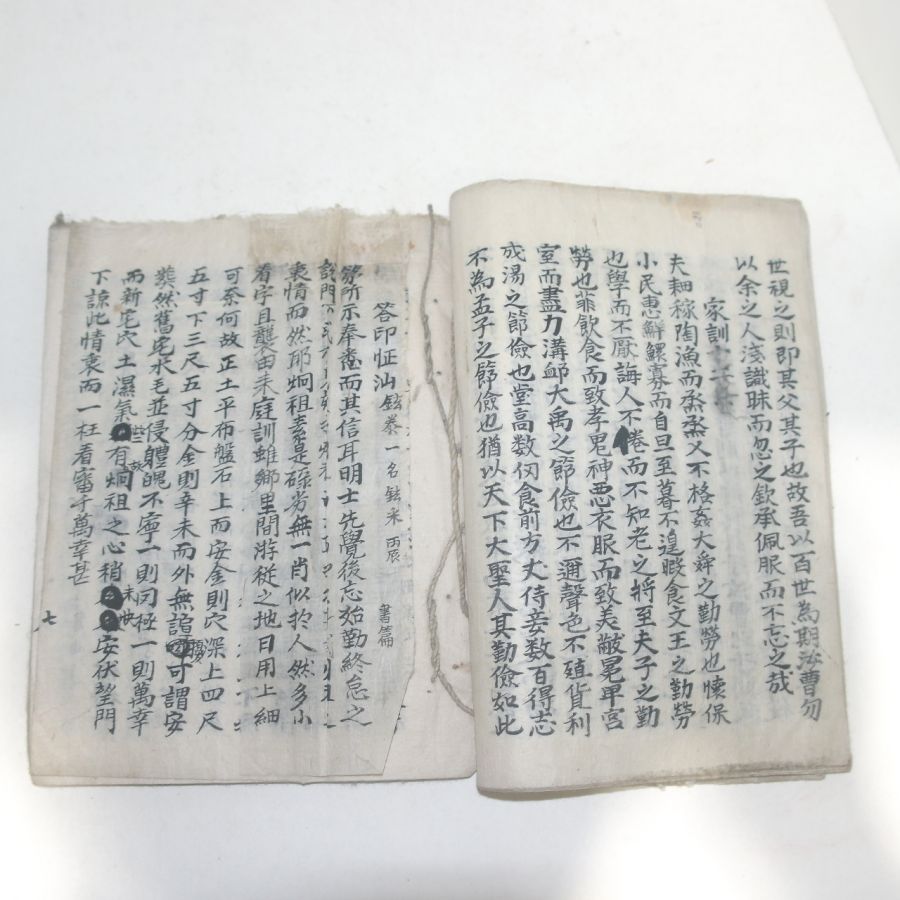 世視之則即其父其子也故吾以百世為期汝曹勿
以余之人淺識昧而忽之欽承佩服而不忘之哉
家訓
夫耕稼陶漁而烝烝乂不格姦大舜之勤勞也懷保
小民惠鮮鰥寡而自旦至暮不遑暇食文王之勤勞
也學而不厭誨人不倦而不知老之將至夫子之勤
勞也菲飲食而致孝鬼神惡衣服而致美黻冕卑宮
室而盡力溝䘏大禹之節儉也不邇聲色不殖貨利
成湯之節儉也堂高数仞食前方丈侍妾数百得志
不為孟子之節儉也猶以天下大聖人其勤儉如此
答印怔汕 鉉奉 一名鉉釆 丙辰 書篇
所示奉耆而其信耳明士先覺後忘始勤終怠之
衷情而然耶炯祖素是碌劣無一肖似於人然多小
看字且襲留來庭訓雖鄉里間游從之地日用上細
可奈何故正土平布盤石上而安金則穴深上四尺
五寸下三尺五寸分金則辛未而外無可謂安
葬然舊宅水毛並侵體魄不寧一則罔極一則萬幸
而新宅穴土濕氣些有故炯祖之心稍未安伏望門
下諒此情衷而一枉看審千萬幸甚
七